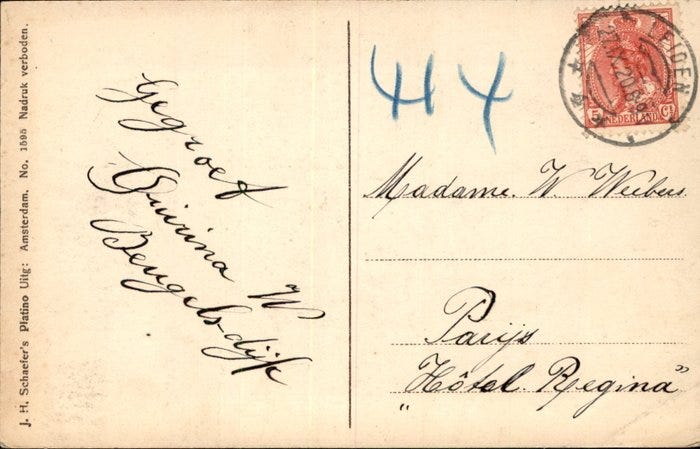 J. H. Schaefer's Platino Uitg: Amsterdam. No. 1595 Nadruk verboden.
Gegroet
Quirina W
Beugelsdijk
44
LEIDEN
5 Ct
NEDERLAND
Madame. W Weebers
Parijs
"Hôtel Regina"